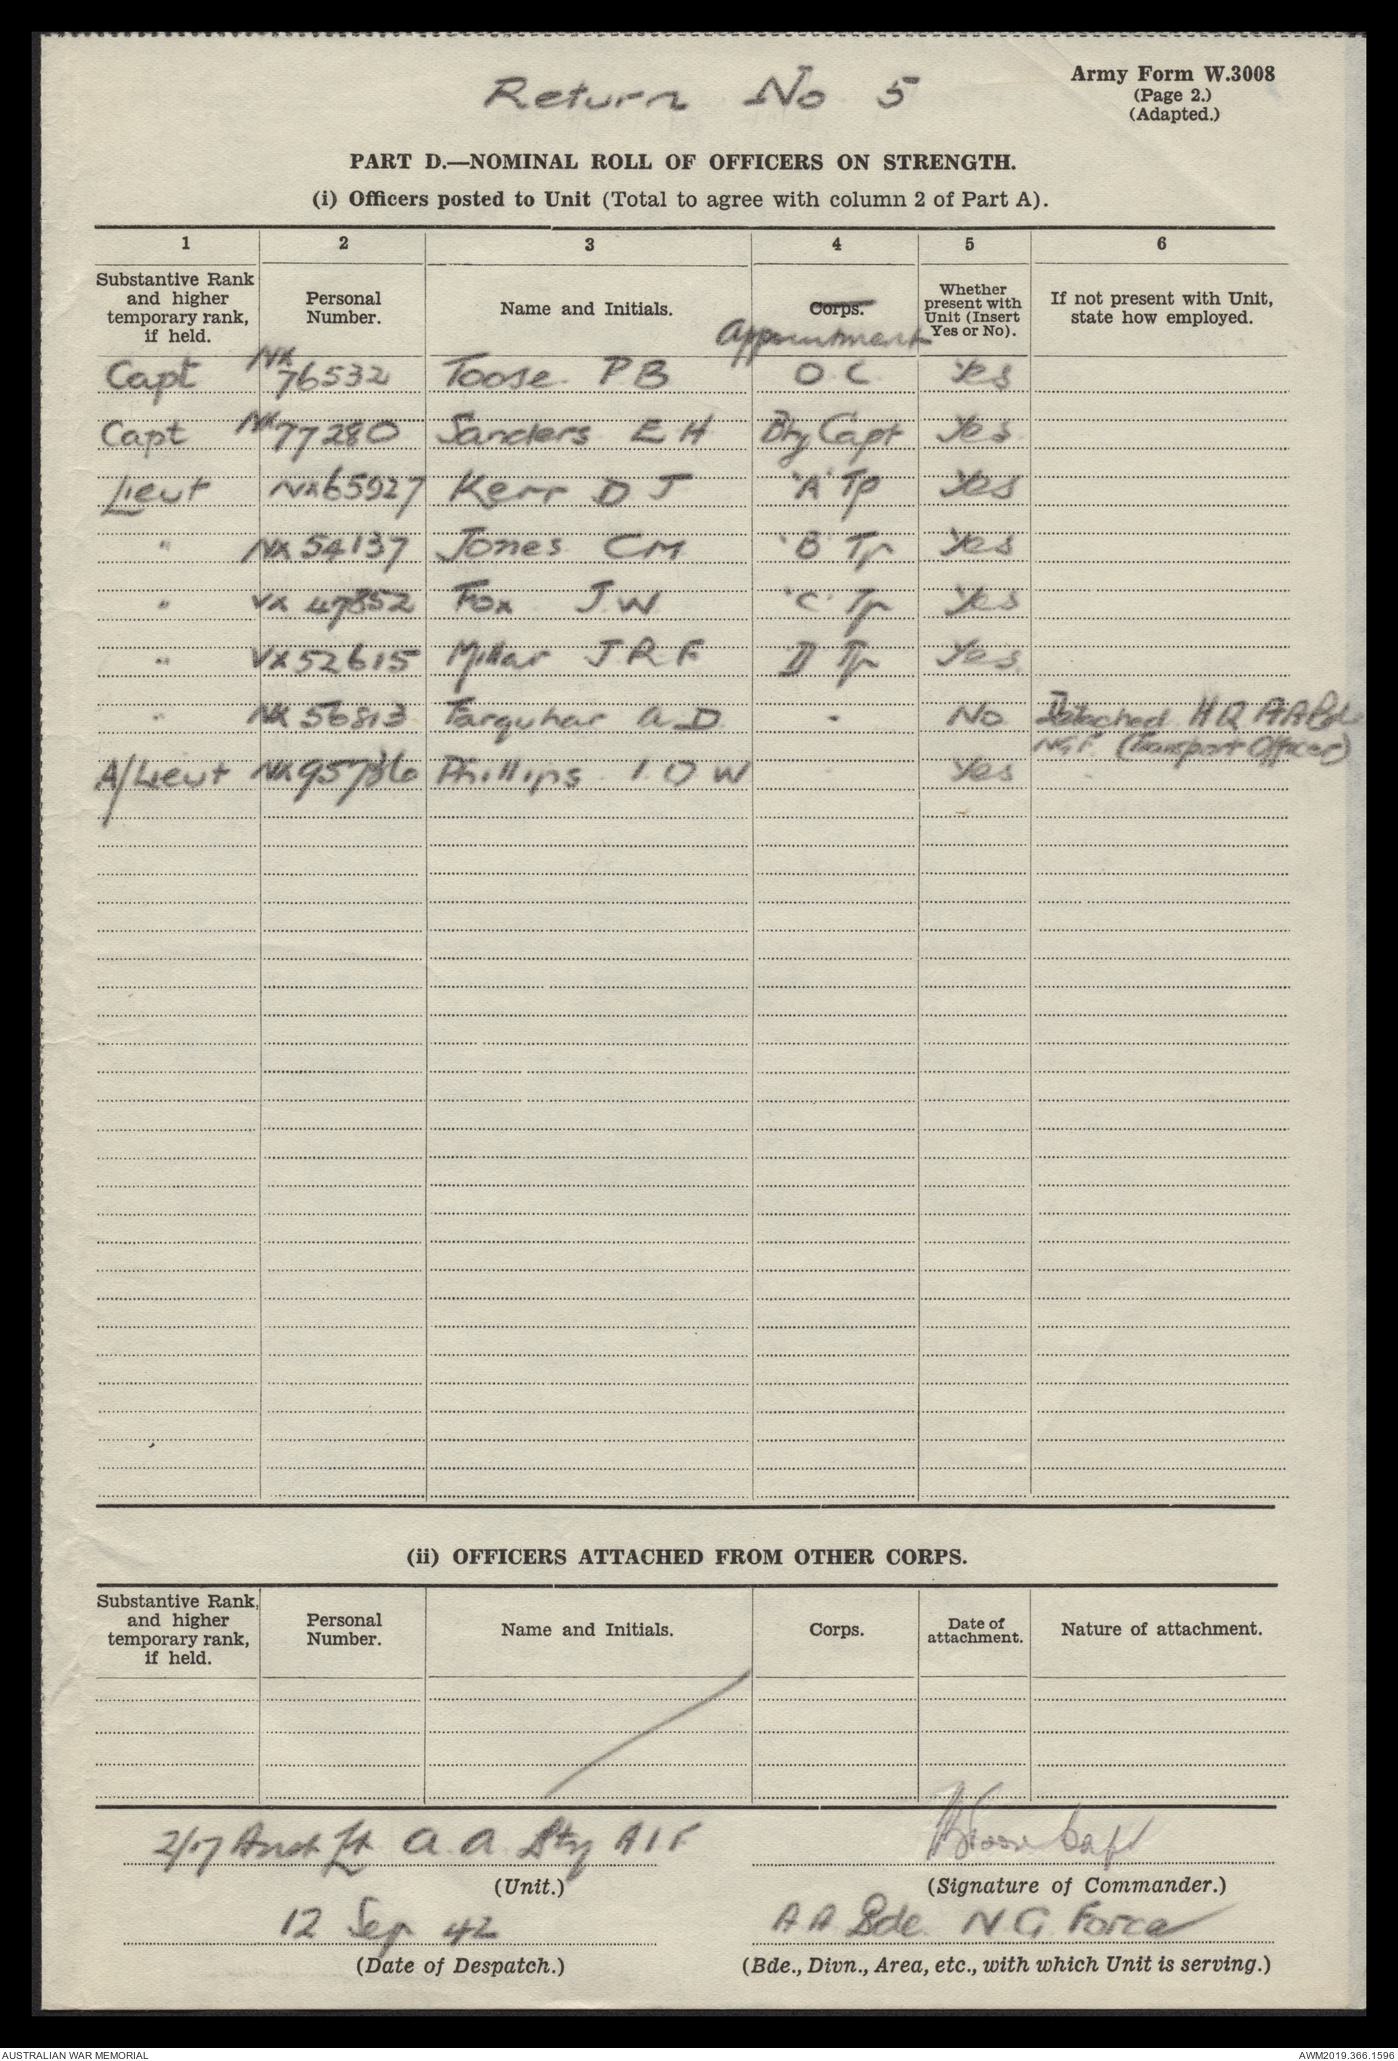 Return No 5
Army Form W.3008
(Page 2.)
(Adapted.)
PART D.—NOMINAL ROLL OF OFFICERS ON STRENGTH.
(i) Officers posted to Unit (Total to agree with column 2 of Part A).
1 2 3 4 5 6
Substantive Rank and higher temporary rank, if held. Personal Number. Name and Initials. Corps. Appointment Whether present with Unit (Insert Yes or No). If not present with Unit, state how employed.
Capt NX 76532 Toose P B O C Yes
Capt NX 77280 Sanders E H Bty Capt Yes
Lieut NX65927 Kerr D J 'A' Tp Yes
" NX 54137 Jones C M 'B' Tp Yes
" VX 47852 Fox J W 'C' Tp Yes
" VX52615 Millar J R F D Tp Yes
" NX 56813 Farquhar A D - No Detached H Q A A Bde
N G F (Transport Officer)
A/Lieut NX95786 Phillips I O W - Yes
(ii) OFFICERS ATTACHED FROM OTHER CORPS.
Substantive Rank, and higher temporary rank, if held. Personal Number. Name and Initials. Corps. Date of attachment. Nature of attachment.
2/17 Aust Lt A. A. Bty A I F
Capt
(Unit.) (Signature of Commander.)
12 Sep 42 A A Bde. N G Force
(Date of Despatch.) (Bde., Divn., Area, etc., with which Unit is serving.)
AUSTRALIAN WAR MEMORIAL AWM2019.366.1596